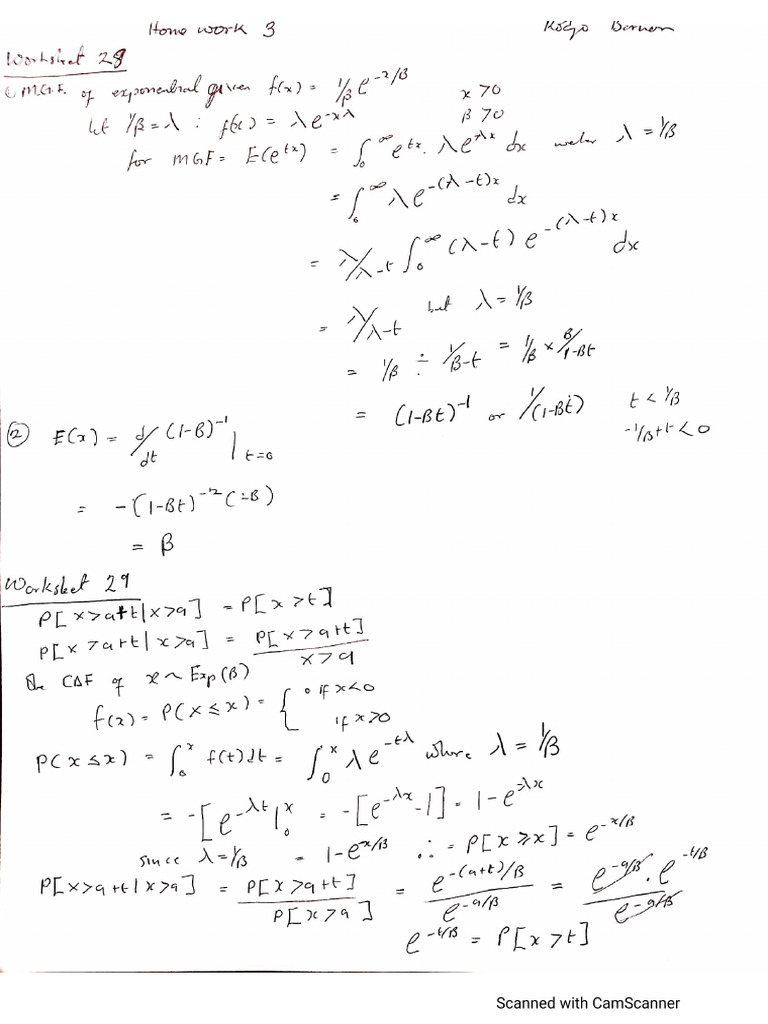 Home work 3 Kodjo
Worksheet 28
① M.G.F. of exponential given f(x) = 1/β e^{-x/β} x>0
let 1/β = λ : f(x) = λe^{-xλ} β>0
for MGF = E(e^{tx}) = ∫_0^∞ e^{tx}. λe^{-λx} dx λ = 1/β
= ∫_0^∞ λe^{-(λ-t)x} dx
= λ/λ-t ∫_0^∞ (λ-t) e^{-(λ-t)x} dx
= λ/λ-t but λ = 1/β
= 1/β ÷ 1/β-t = 1/β × β/1-βt
= (1-βt)^{-1} or 1/(1-βt) t < 1/β
-1/β+t < 0
② E(x) = d/dt (1-β)^{-1} |_{t=0}
= -(1-βt)^{-2} (-β)
= β
Worksheet 29
P[x>a+t|x>a] = P[x>t]
P[x>a+t|x>a] = P[x>a+t] / x>a
The CDF of x ~ Exp(β)
f(x) = P(X≤x) = { 0 if x<0
if x>0
P(x≤x) = ∫_0^x f(t)dt = ∫_0^x λe^{-tλ} where λ = 1/β
= -[e^{-λt}|_0^x = -[e^{-λx} -1] = 1-e^{-λx}
since λ=1/β = 1-e^{x/β} ∴ = P[x≥x] = e^{-x/β}
P[x>a+t|x>a] = P[x>a+t] / P[x>a] = e^{-(a+t)/β} / e^{-a/β} = e^{-a/β}.e^{-t/β} / e^{-a/β}
e^{-t/β} = P[x>t]
Scanned with CamScanner